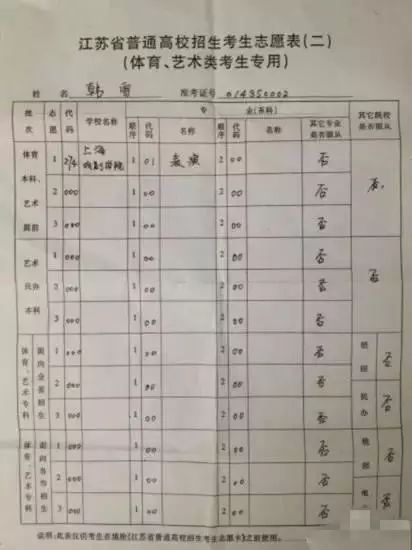 江苏省普通高校招生考生志愿表(二)
(体育、艺术类考生专用)
姓 名 韩雪 准考证号 014350002
批次 志愿 代码 学校名称 专业(系科) 其它专业是否服从 其它院校是否服从
顺序 代码 名称 顺序 代码 名称
体育本科、艺术提前 1 214 上海戏剧学院 1 01 表演 2 00 否 否
2 000 1 00 2 00 否
3 000 1 00 2 00 否
艺术民办本科 1 000 1 00 2 00 否 否
2 000 1 00 2 00 否
3 000 1 00 2 00 否
体育、艺术专科 面向全省招生 1 000 1 00 2 00 否 否
2 000 1 00 2 00 否 民办 否
3 000 1 00 2 00 否
体育、艺术专科 面向各市招生 1 000 1 00 2 00 否 否
2 000 1 00 2 00 否
3 000 1 00 2 00 否 否
说明:此表仅供考生在填涂《江苏省普通高校招生考生志愿卡》之前使用。